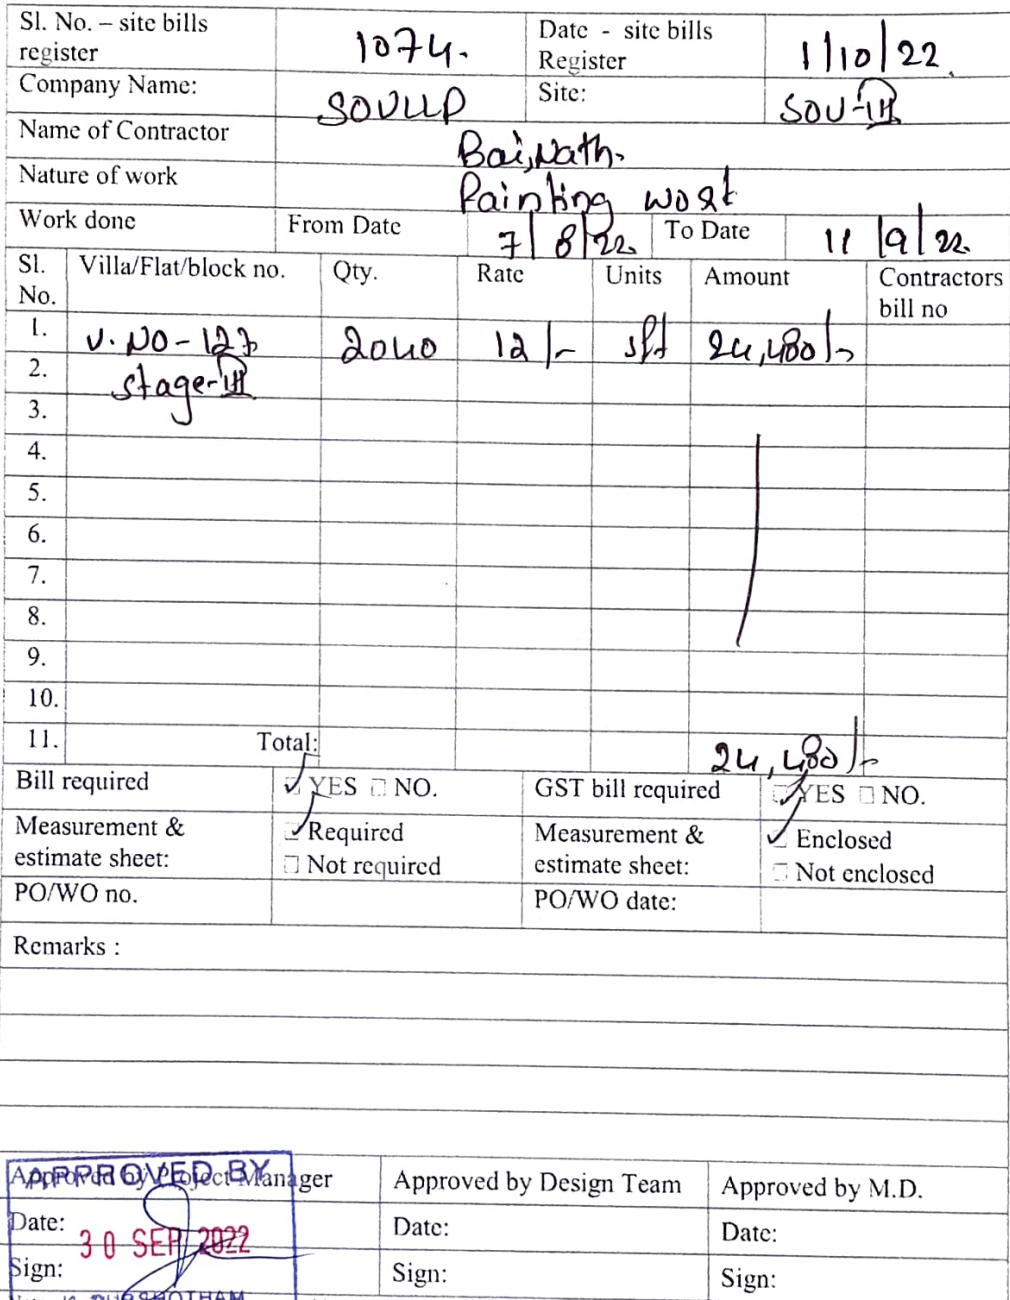 Sl. No. – site bills register 1074. Date - site bills Register 1/10/22.
Company Name: SOVLLP Site: SOV-III
Name of Contractor Baijnath.
Nature of work Painting work
Work done From Date 7/8/22. To Date 11/9/22.
Sl. No. Villa/Flat/block no. Qty. Rate Units Amount Contractors bill no
1. V. NO - 127 2040 12/- sft 24,480/-
2. Stage-III
3.
4.
5.
6.
7.
8.
9.
10.
11. Total: 24,480/-
Bill required YES NO. GST bill required YES NO.
Measurement & estimate sheet: Required Not required Measurement & estimate sheet: Enclosed Not enclosed
PO/WO no. PO/WO date:
Remarks :
APPROVED BY
Approved by Project Manager Approved by Design Team Approved by M.D.
Date: 30 SEP 2022 Date: Date:
Sign: Sign: Sign: